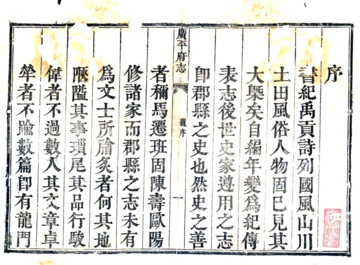 序
書紀禹貢詩列國風山川
土田風俗人物固已見其
大槩矣自編年變為紀傳
表志後世史家遵用之志
卽郡縣之史也然史之善
廣平府志
舊序
一
者稱馬遷班固陳壽歐陽
修諸家而郡縣之志未有
為文士所膾炙者何其地
陿隘其事瑣屑其品行駿
偉者不過數人其文章卓
犖者不踰數篇卽有龍門